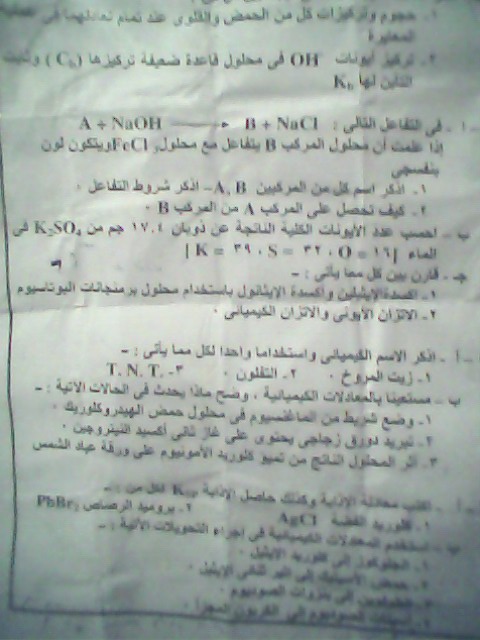 ١. حجوم وتركيزات كل من الحمض والقلوى عند تمام تعادلهما فى عملية
المعايرة
٢. تركيز أيونات OH⁻ فى محلول قاعدة ضعيفة تركيزها ( Cb ) وثابت
التأين لها Kb
أ - فى التفاعل التالى : A + NaOH ⟶ B + NaCl
إذا علمت أن محلول المركب B يتفاعل مع محلول FeCl₃ ويتكون لون
بنفسجى
١. اذكر اسم كل من المركبين A , B – اذكر شروط التفاعل .
٢. كيف تحصل على المركب A من المركب B .
ب - احسب عدد الأيونات الكلية الناتجة عن ذوبان ١٧.٤ جم من K₂SO₄ فى
الماء [ K = ٣٩ , S = ٣٢ , O = ١٦ ]
جـ - قارن بين كل مما يأتى : -
١. أكسدة الإيثيلين وأكسدة الإيثانول باستخدام محلول برمنجانات البوتاسيوم
٢. الاتزان الأيونى والاتزان الكيميائى .
أ - اذكر الاسم الكيميائى واستخداما واحدا لكل مما يأتى : -
١. زيت المروخ . ٢. التفلون . ٣- T. N. T.
ب - مستعينا بالمعادلات الكيميائية . وضح ماذا يحدث فى الحالات الآتية : -
١. وضع شريط من الماغنسيوم فى محلول حمض الهيدروكلوريك .
٢. تبريد دورق زجاجى يحتوى على غاز ثانى أكسيد النيتروجين .
٣. أثر المحلول الناتج من تميؤ كلوريد الأمونيوم على ورقة عباد الشمس
أ - اكتب معادلة الإذابة وكذلك حاصل الإذابة Ksp لكل من : -
١. كلوريد الفضة AgCl ٢. بروميد الرصاص PbBr₂
ب - استخدم المعادلات الكيميائية فى إجراء التحويلات الآتية : -
١. الجلوكوز إلى كلوريد الإيثيل .
٢. حمض الأسيتيك إلى
٣. إلى بنزوات الصوديوم .